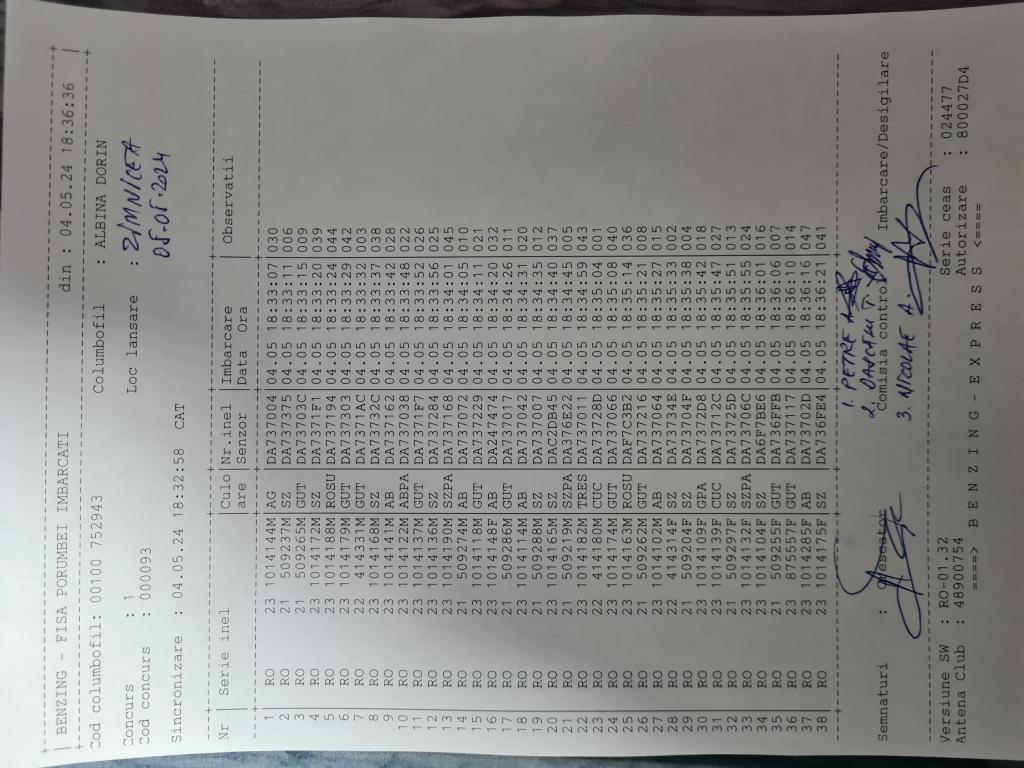 BENZING - FISA PORUMBEI IMBARCATI
din : 04.05.24 18:36:36
Cod columbofil: 00100 752943 Columbofil : ALBINA DORIN
Concurs : 1 Loc lansare :
Cod concurs : 000093 05.05.2024
Sincronizare : 04.05.24 18:32:58 CAT
Nr | Serie inel |Culo|Nr.inel |Imbarcare | Observatii
|are |Senzor |Data Ora |
1 |RO 23 1014144M|AG |DA737004|04.05 18:33:07|030
2 |RO 21 509237M|SZ |DA737375|04.05 18:33:11|006
3 |RO 21 509265M|GUT |DA73703C|04.05 18:33:15|009
4 |RO 23 1014172M|SZ |DA7371F1|04.05 18:33:20|039
5 |RO 23 1014188M|ROSU|DA737194|04.05 18:33:24|044
6 |RO 23 1014179M|GUT |DA737303|04.05 18:33:29|042
7 |RO 22 414331M|GUT |DA7371AC|04.05 18:33:32|003
8 |RO 23 1014168M|SZ |DA73732C|04.05 18:33:37|038
9 |RO 23 1014141M|AB |DA737162|04.05 18:33:42|028
10 |RO 23 1014122M|ABPA|DA737038|04.05 18:33:48|022
11 |RO 23 1014137M|GUT |DA7371F7|04.05 18:33:52|026
12 |RO 23 1014136M|SZ |DA737284|04.05 18:33:56|025
13 |RO 23 1014190M|SZPA|DA737168|04.05 18:34:01|045
14 |RO 21 509274M|AB |DA737072|04.05 18:34:05|010
15 |RO 23 1014118M|GUT |DA737229|04.05 18:34:11|021
16 |RO 23 1014148F|AB |DA247474|04.05 18:34:20|032
17 |RO 21 509286M|GUT |DA737017|04.05 18:34:26|011
18 |RO 23 1014114M|AB |DA737042|04.05 18:34:31|020
19 |RO 21 509288M|SZ |DA737007|04.05 18:34:35|012
20 |RO 23 1014165M|SZ |DAC2DB45|04.05 18:34:40|037
21 |RO 21 509219M|SZPA|DA376E22|04.05 18:34:45|005
22 |RO 23 1014182M|TRES|DA737011|04.05 18:34:59|043
23 |RO 22 414180M|CUC |DA73728D|04.05 18:35:04|001
24 |RO 23 1014174M|GUT |DA737066|04.05 18:35:08|040
25 |RO 23 1014163M|ROSU|DAF7C3B2|04.05 18:35:14|036
26 |RO 21 509262M|GUT |DA737216|04.05 18:35:21|008
27 |RO 23 1014102M|AB |DA737064|04.05 18:35:27|015
28 |RO 22 414314F|SZ |DA73734E|04.05 18:35:33|002
29 |RO 21 509204F|SZ |DA73704F|04.05 18:35:38|004
30 |RO 23 1014109F|GPA |DA7372D8|04.05 18:35:42|018
31 |RO 23 1014139F|CUC |DA73712C|04.05 18:35:47|027
32 |RO 21 509297F|SZ |DA73725D|04.05 18:35:51|013
33 |RO 23 1014132F|SZPA|DA73706C|04.05 18:35:55|024
34 |RO 23 1014104F|SZ |DA6F7BE6|04.05 18:36:01|016
35 |RO 21 509255F|GUT |DA736FFB|04.05 18:36:06|007
36 |RO 23 875557F|GUT |DA737117|04.05 18:36:10|014
37 |RO 23 1014285F|AB |DA73702D|04.05 18:36:16|047
38 |RO 23 1014175F|SZ |DA736FE4|04.05 18:36:21|041
1. PETRE
2.
Semnaturi : Crescator Comisia control Imbarcare/Desigilare
3. NICOLAE A.
Versiune SW : RO-01.32 Serie ceas : 024477
Antena Club : 48900754 Autorizare : 800027D4
====> B E N Z I N G - E X P R E S S <====